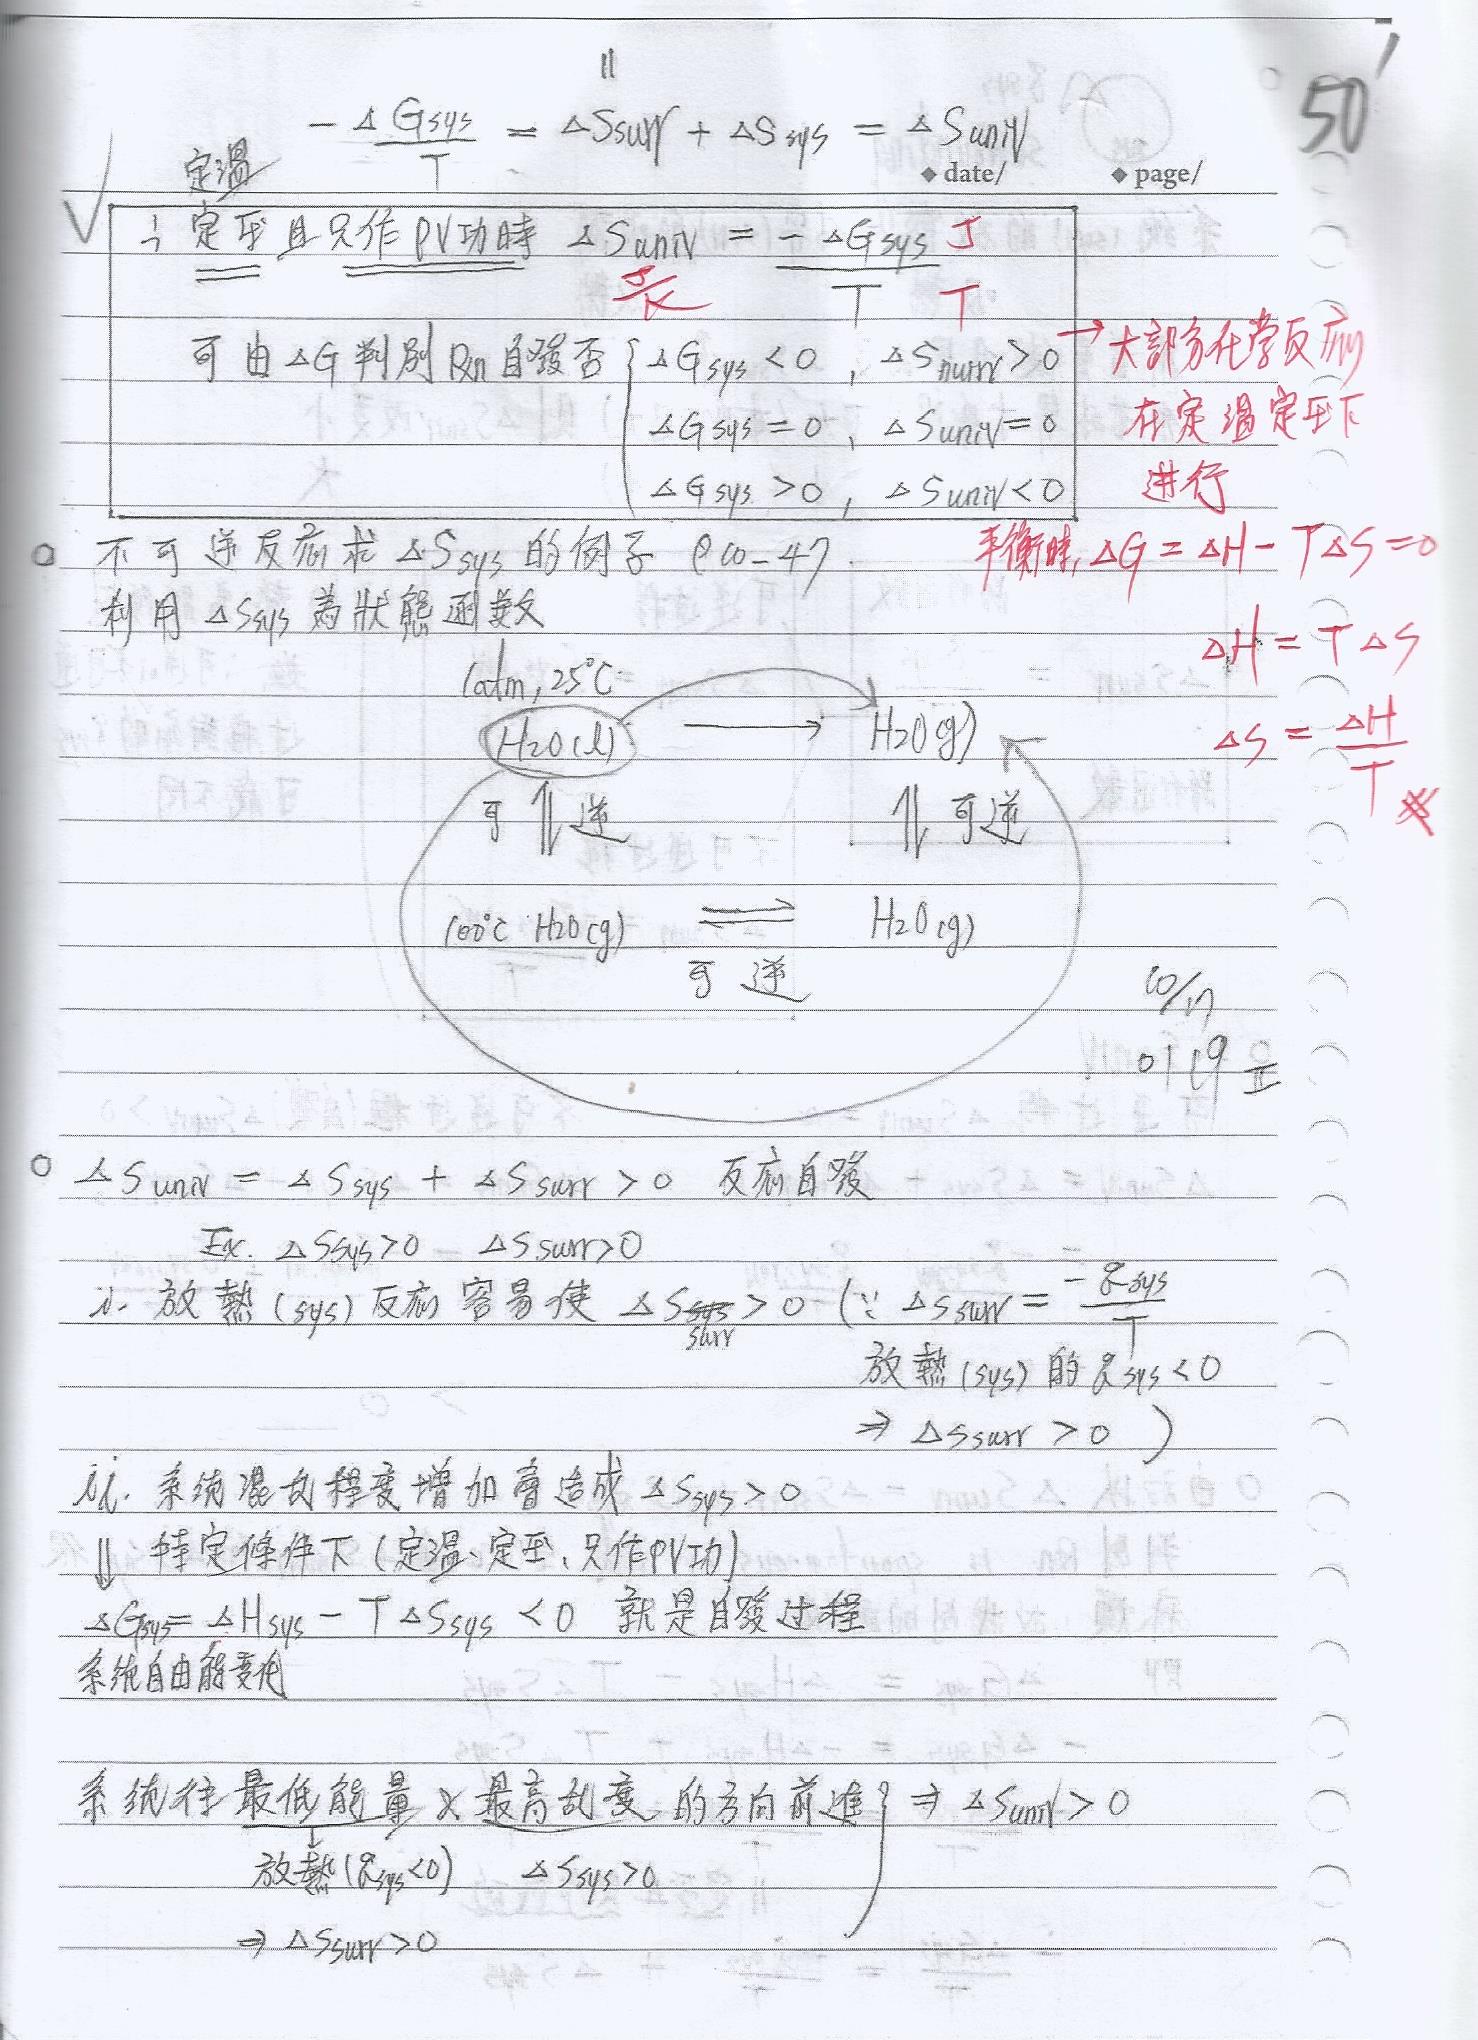 50'
॥
-ΔGsys/T = ΔSsurr + ΔSsys = ΔSuniv
◆ date/ ◆ page/
定溫
∴ 定壓且只作PV功時 ΔSuniv = -ΔGsys/T J/T
J/K
可由ΔG判別Rxn自發否 { ΔGsys<0 , ΔSnurr>0
→ 大部分化学反应
ΔGsys=0 , ΔSuniv=0
在定溫定压下
ΔGsys>0 , ΔSuniv<0
進行
○ 不可逆反应求ΔSsys的例子 P10-47
平衡時, ΔG = ΔH - TΔS = 0
利用ΔSsys為狀態函数
ΔH = TΔS
1atm, 25°C
ΔS = ΔH/T ※
H2O(l) → H2O(g)
可⇅逆 ⇅可逆
100°C H2O(g) ⇌ H2O(g)
可逆
10/17
0119
○ ΔSuniv = ΔSsys + ΔSsurr > 0 反应自發
Ex. ΔSsys>0 ΔSsurr>0
i. 放熱(sys)反应容易使 ΔSsurr > 0 (∵ ΔSsurr = -qsys/T
放熱(sys)的qsys<0
⇒ ΔSsurr > 0 )
ii. 系統混乱程度增加會造成ΔSsys>0
⇓ 特定條件下(定溫、定壓、只作PV功)
ΔGsys = ΔHsys - TΔSsys < 0 就是自發过程
系統自由能变化
系統往最低能量 & 最高乱度的方向前進 } ⇒ ΔSuniv > 0
放熱(qsys<0) ΔSsys>0
⇒ ΔSsurr>0